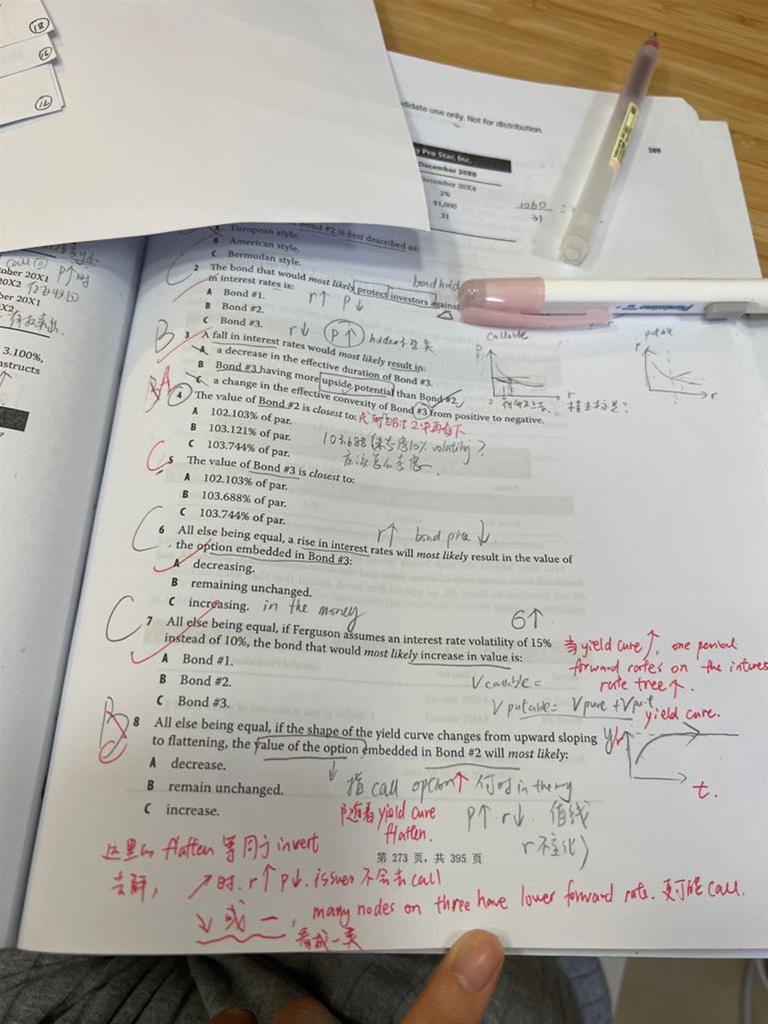 18
16
12
didate use only. Not for distribution.
589
y Pro Star, Inc.
December 20X0
December 20X4
2%
$1,000
31
1260
31
Bond #2 is best described as:
A European style.
B American style.
C Bermudan style.
call
P↑时
tober 20X1
20X2
ber 20X1
X2
3.100%,
nstructs
2 The bond that would most likely protect investors against
in interest rates is:
bond hold
A Bond #1.
r↑ P↓
B Bond #2.
C Bond #3.
r↓ P↑
B
3 A fall in interest rates would most likely result in:
A a decrease in the effective duration of Bond #3.
B Bond #3 having more upside potential than Bond #2.
C a change in the effective convexity of Bond #3 from positive to negative.
callable
putable
P
r
r
r
BA
4 The value of Bond #2 is closest to:
A 102.103% of par.
B 103.121% of par.
C 103.744% of par.
103.688 10% volatility?
C
5 The value of Bond #3 is closest to:
A 102.103% of par.
B 103.688% of par.
C 103.744% of par.
r↑ bond price ↓
C
6 All else being equal, a rise in interest rates will most likely result in the value of
the option embedded in Bond #3:
A decreasing.
B remaining unchanged.
C increasing. in the money
6↑
C
7 All else being equal, if Ferguson assumes an interest rate volatility of 15%
instead of 10%, the bond that would most likely increase in value is:
A Bond #1.
B Bond #2.
C Bond #3.
当yield cure↑, one period
forward rates on the interes
rate tree↑.
V callable =
V putable = V pure + V put
yield cure.
y/r
t.
B
8 All else being equal, if the shape of the yield curve changes from upward sloping
to flattening, the value of the option embedded in Bond #2 will most likely:
A decrease.
B remain unchanged.
C increase.
指 call option↑ 何时 in the
随着 yield cure
flatten.
P↑ r↓
r不变化)
第 273 页，共 395 页
这里的 flatten 等同于 invert
去解,
↗时. r↑ P↓. issuer 不会去 call
↘或一, many nodes on three have lower forward rate. 更可能 call.
看成一类